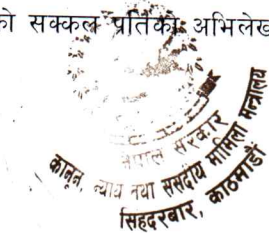 को सक्कल प्रतिको अभिलेख
नेपाल सरकार
कानून, न्याय तथा संसदीय मामिला मन्त्रालय
सिंहदरबार, काठमाडौं